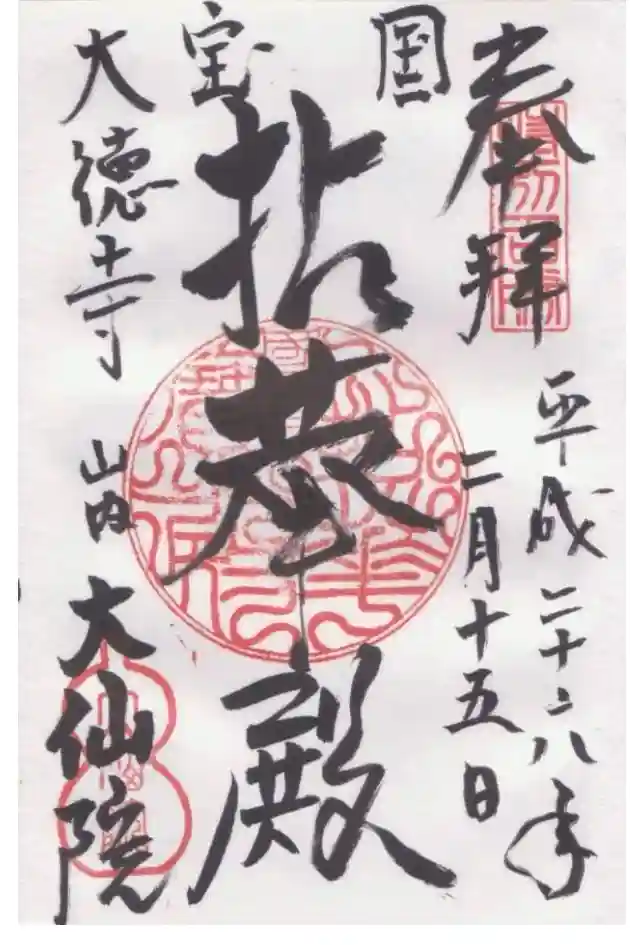 奉拝
平成二十八年
二月十五日
国宝
拈華殿
大徳寺 山内 大仙院